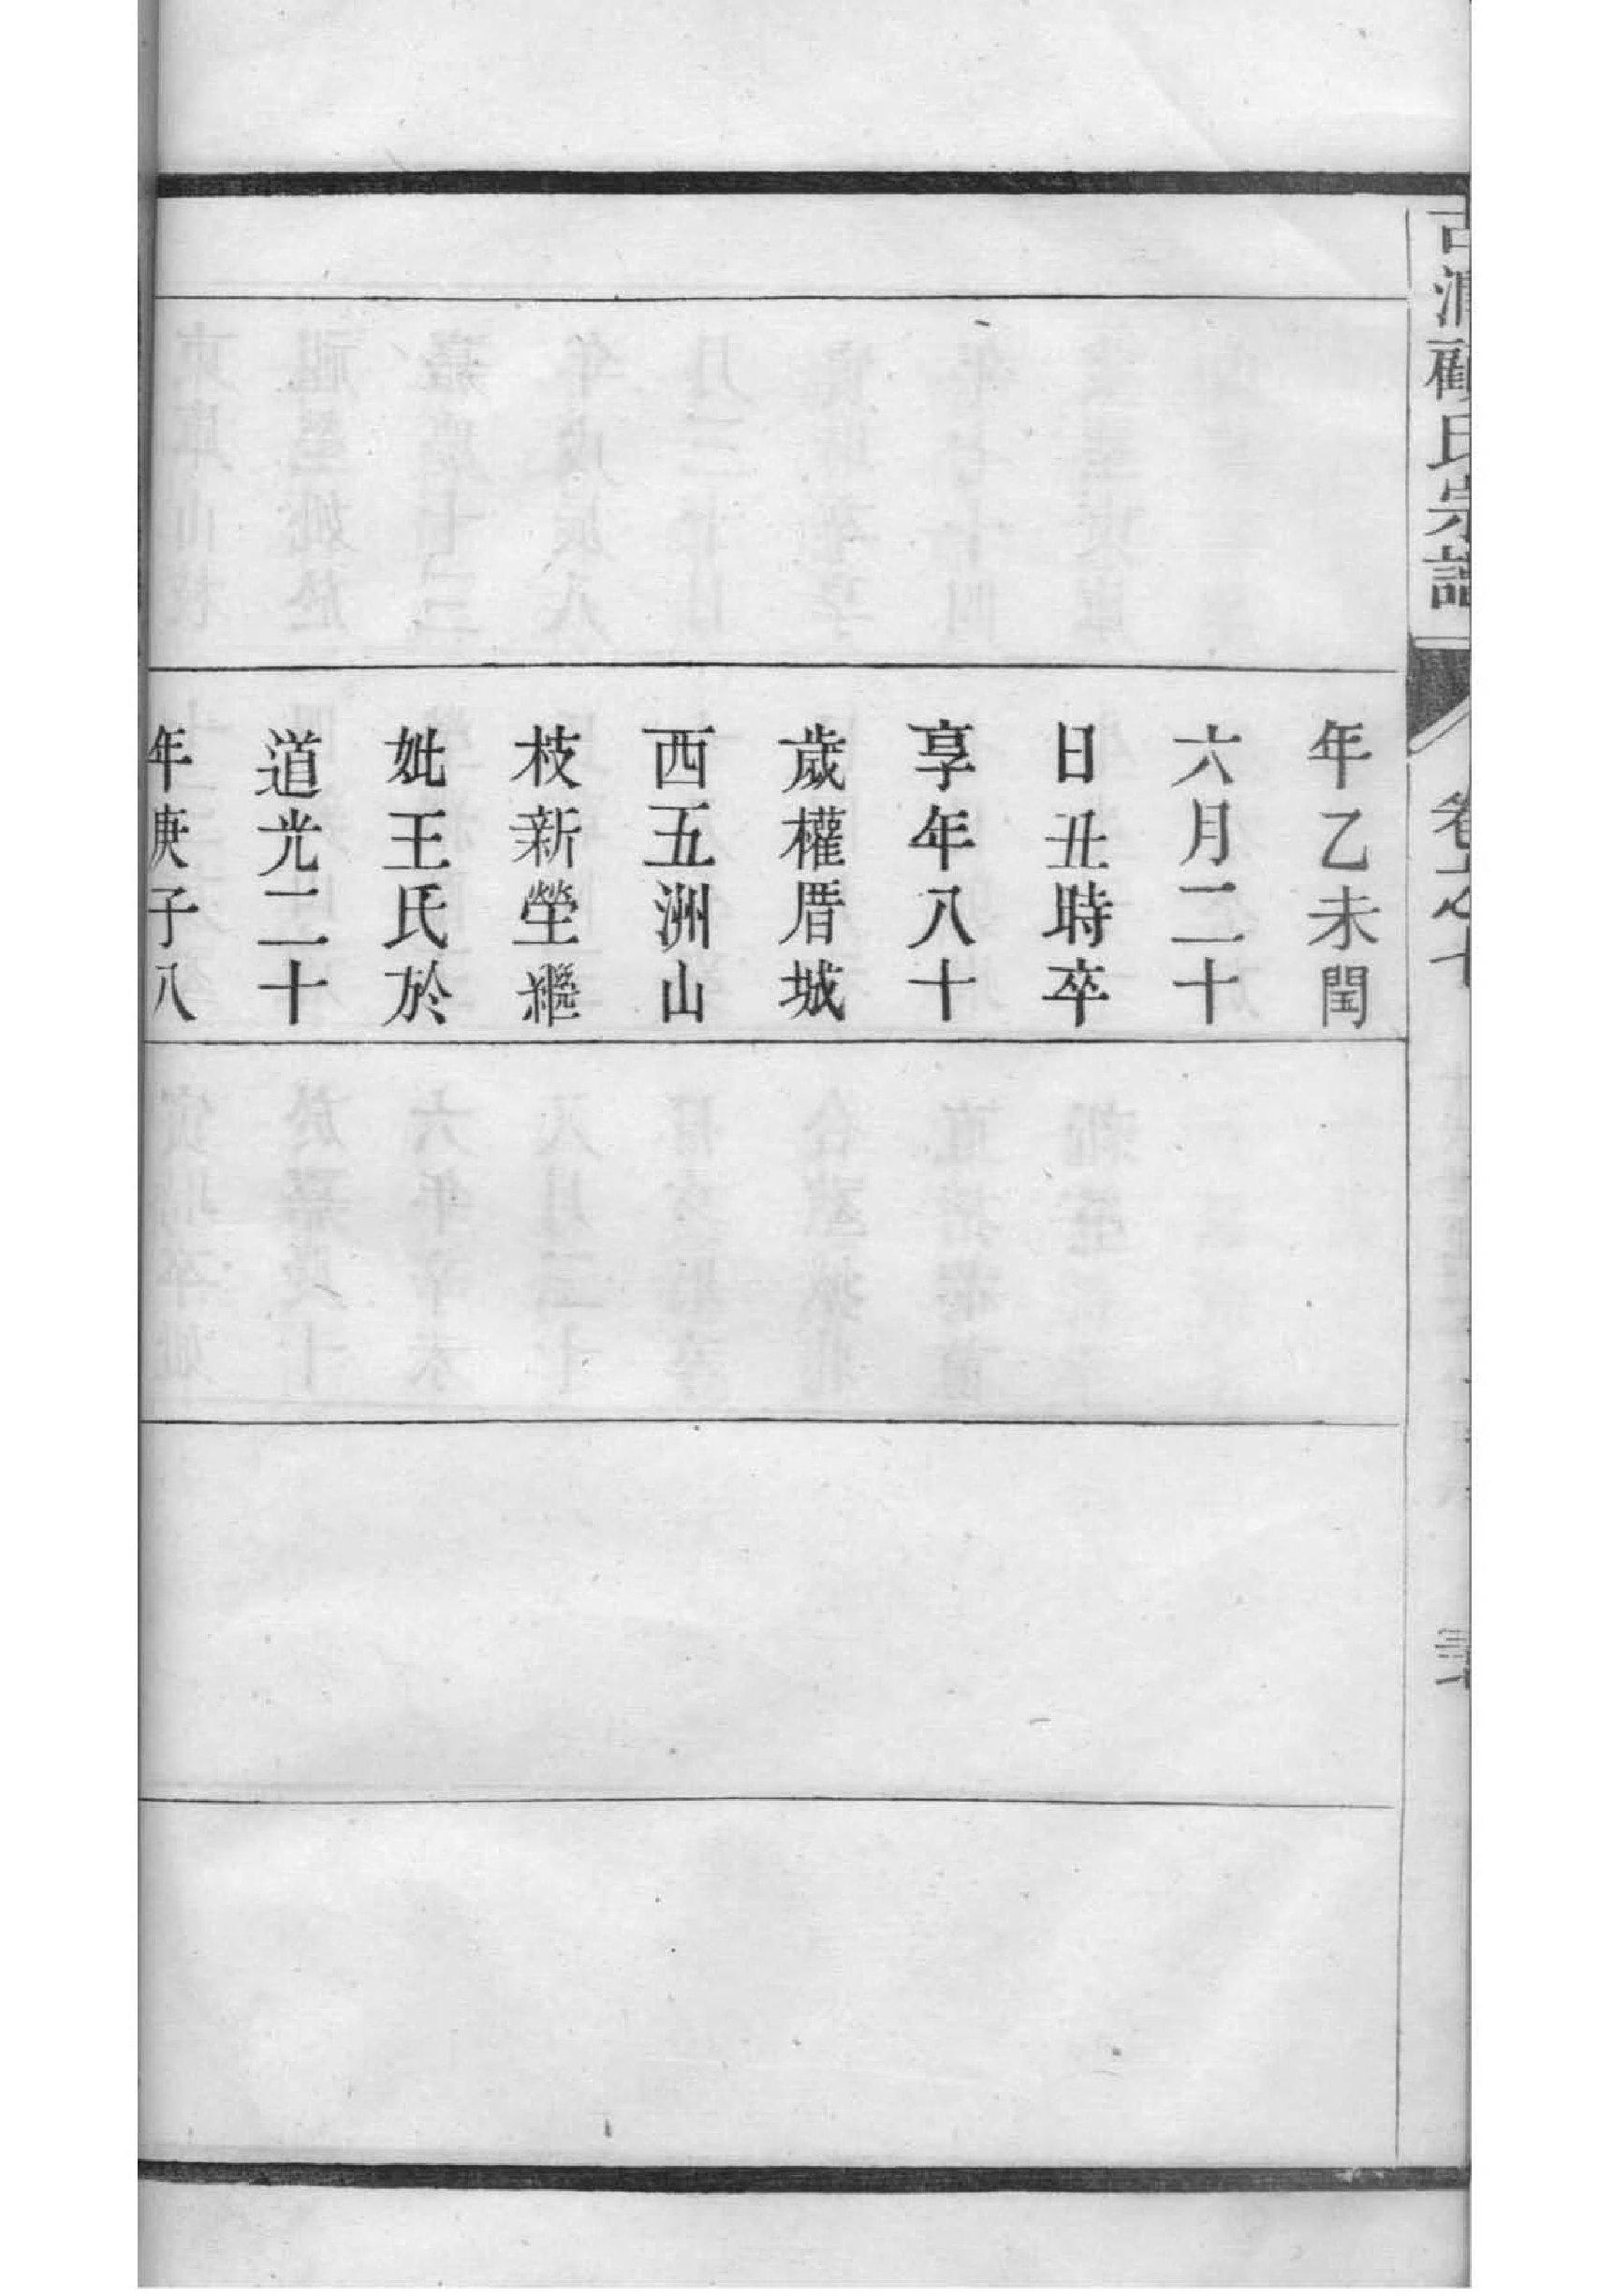 古浦顧氏宗譜
卷之七
年乙未閏
六月二十
日丑時卒
享年八十
歲權厝城
西五洲山
枝新塋繼
妣王氏於
道光二十
年庚子八